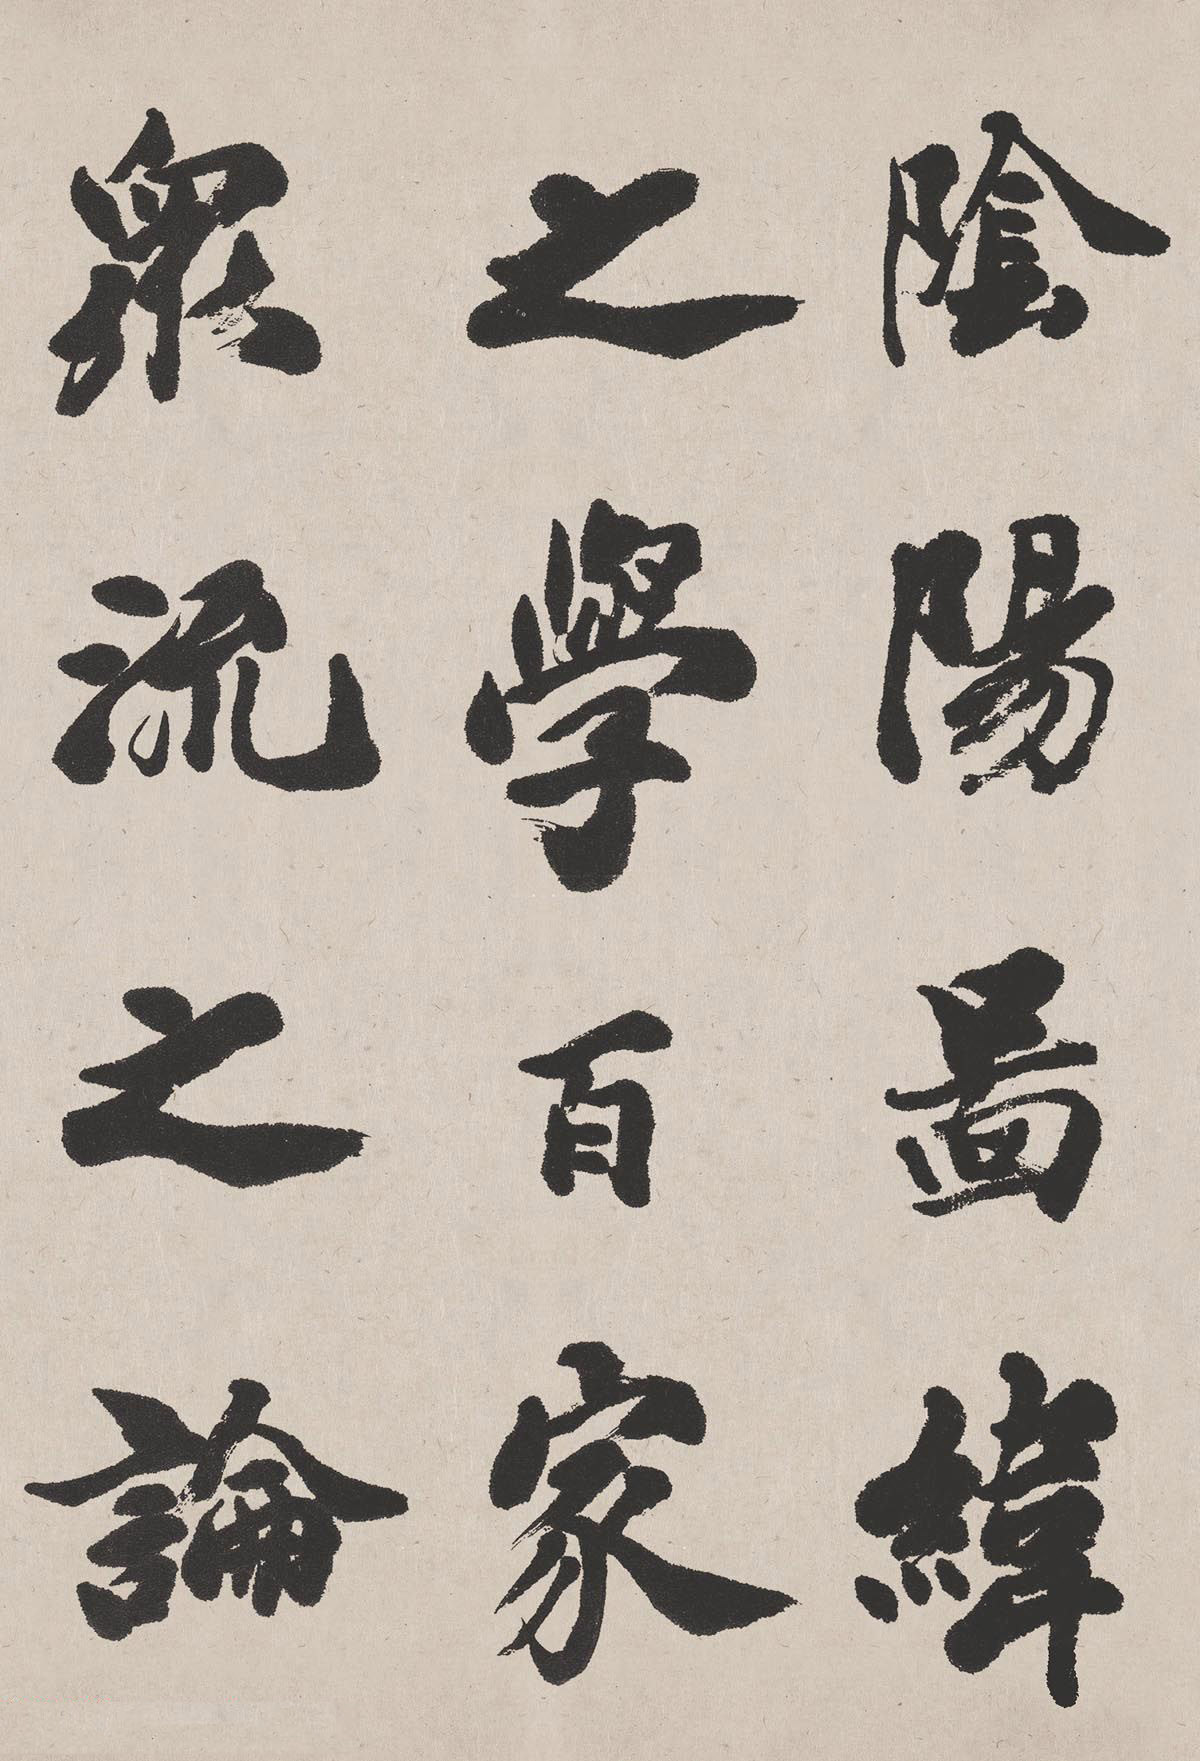 陰陽圖緯
之學百家
衆流之論